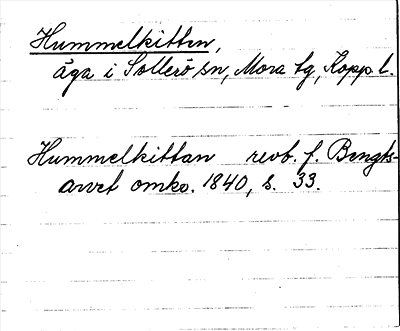 Hummelkitten,
äga i Sollerö sn, Mora tg, Kopp. l.
Hummelkittan revb. f. Bengts-
arvet omkr. 1840, s. 33.